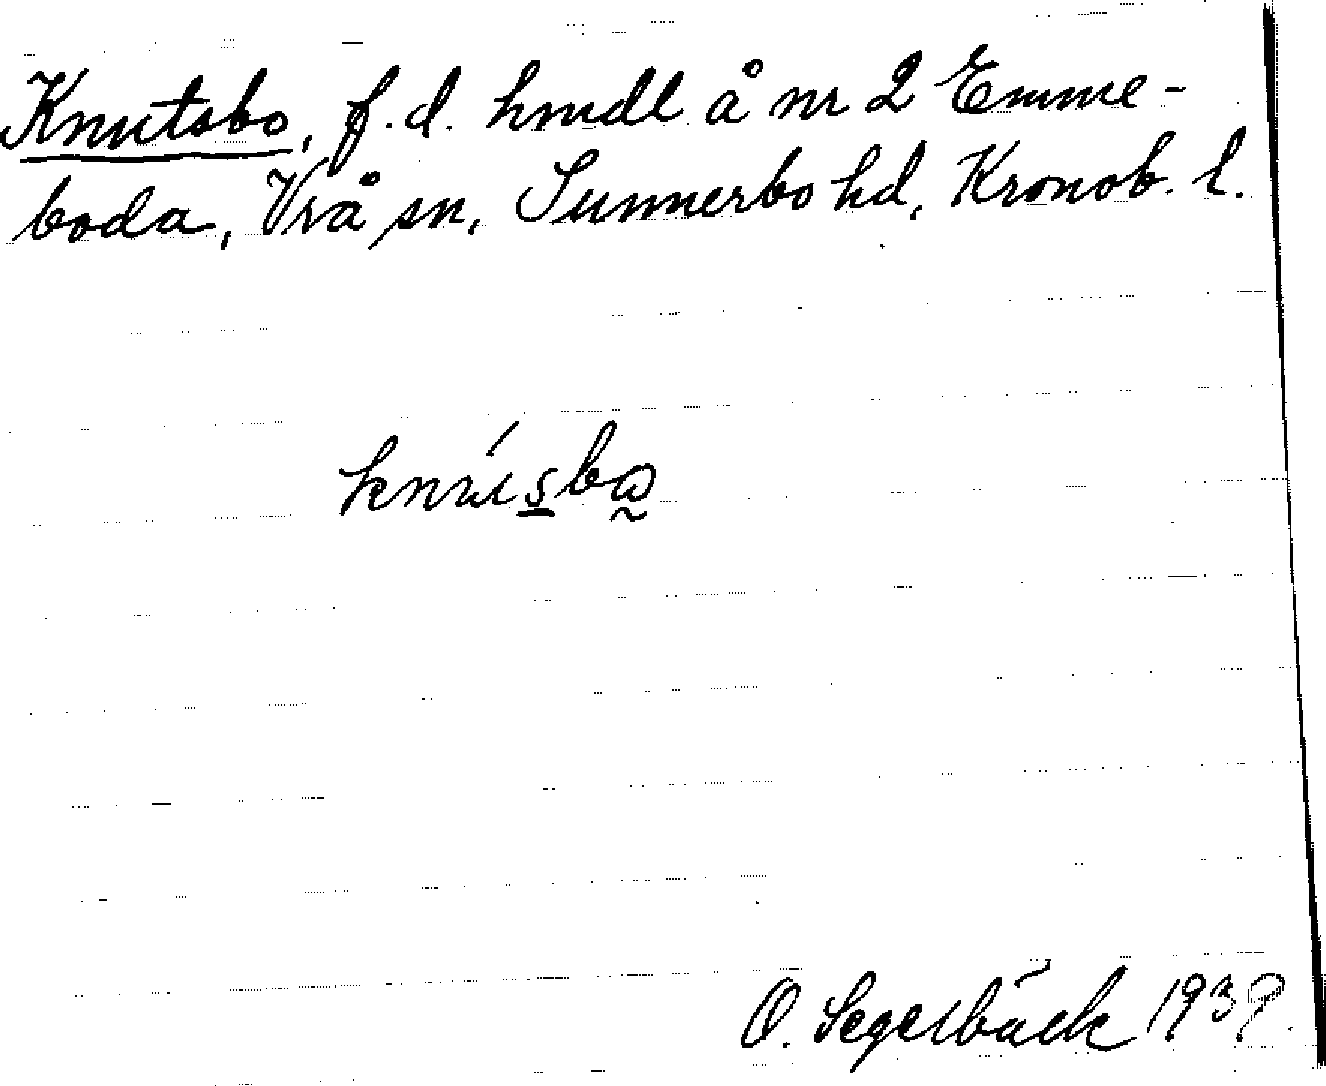 Knutsbo, f.d. hmdl å nr 2 Emme-
boda, Vrå sn, Sunnerbo hd, Kronob. l.
knúsbo
O. Segerbäck 1939.